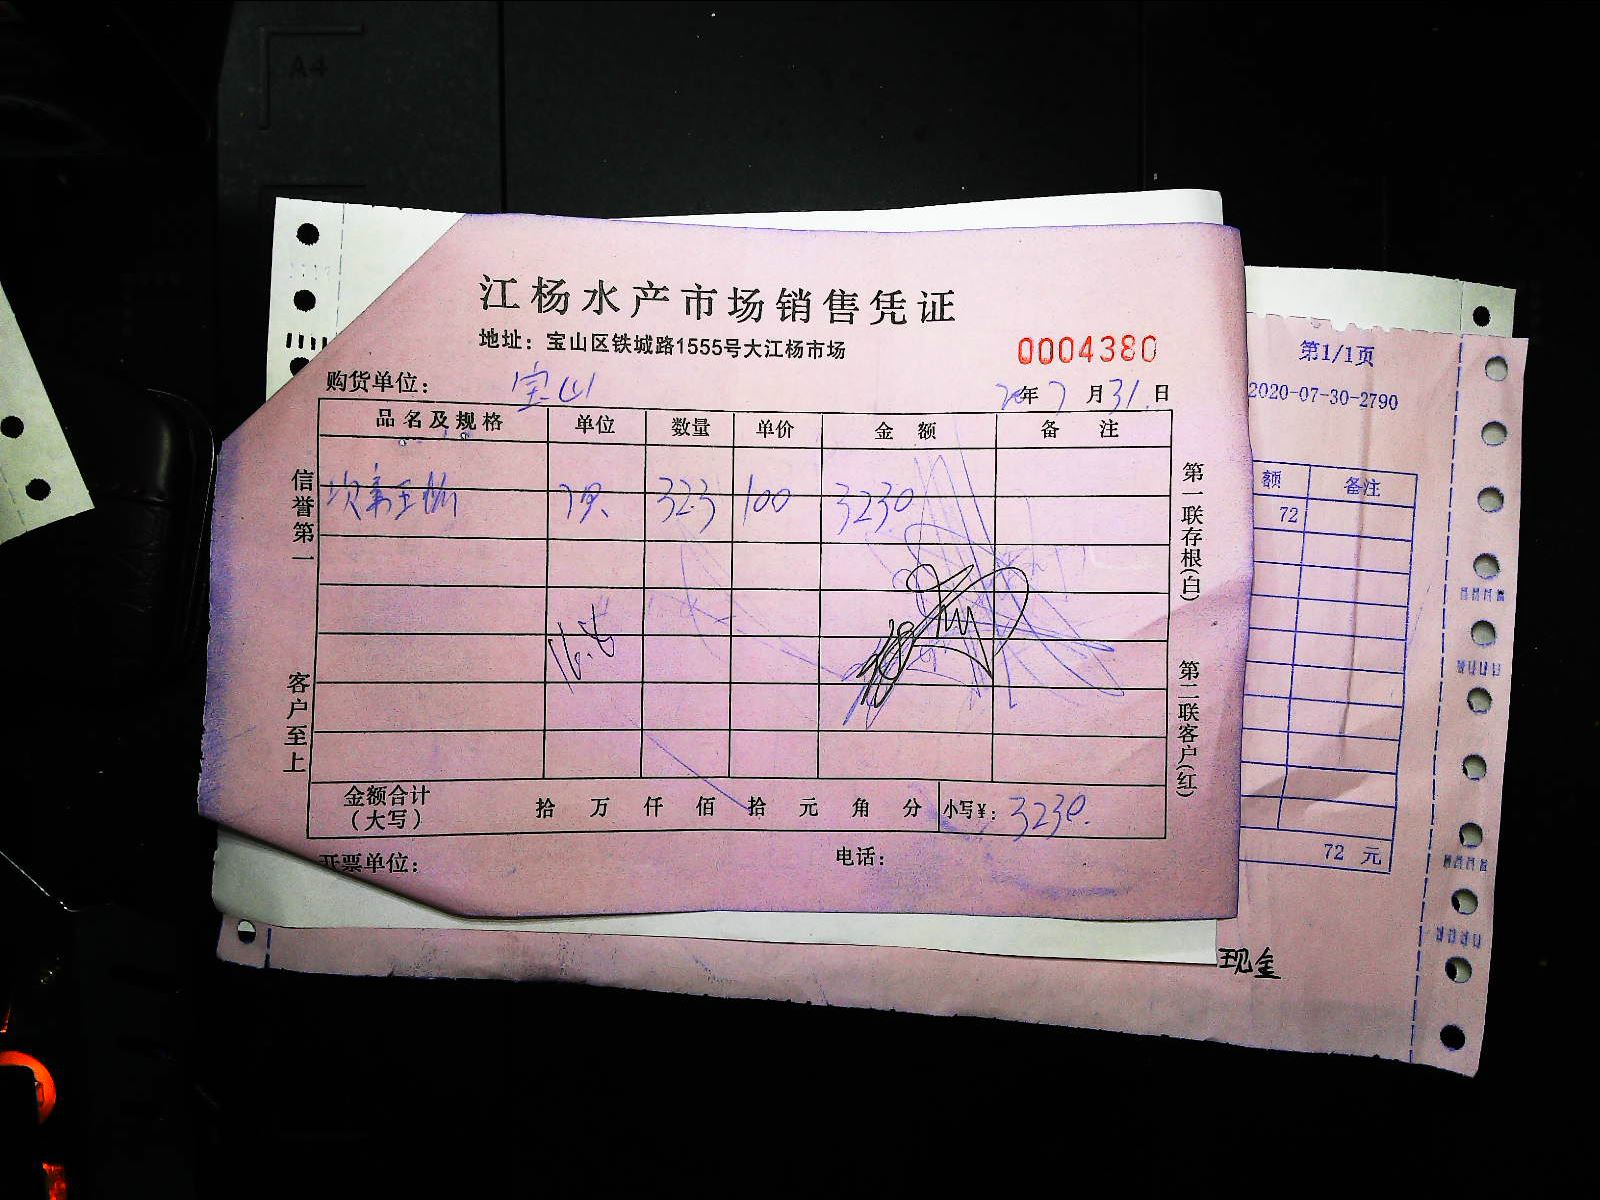 A4
江杨水产市场销售凭证
地址：宝山区铁城路1555号大江杨市场
0004380
购货单位： 宝山
20年7月31日
品名及规格 单位 数量 单价 金额 备注
323 100 3230
信誉第一
客户至上
第一联存根(白)
第二联客户(红)
金额合计(大写) 拾 万 仟 佰 拾 元 角 分 小写¥：3230.
开票单位： 电话：
第1/1页
2020-07-30-2790
额 备注
72
72 元
现金